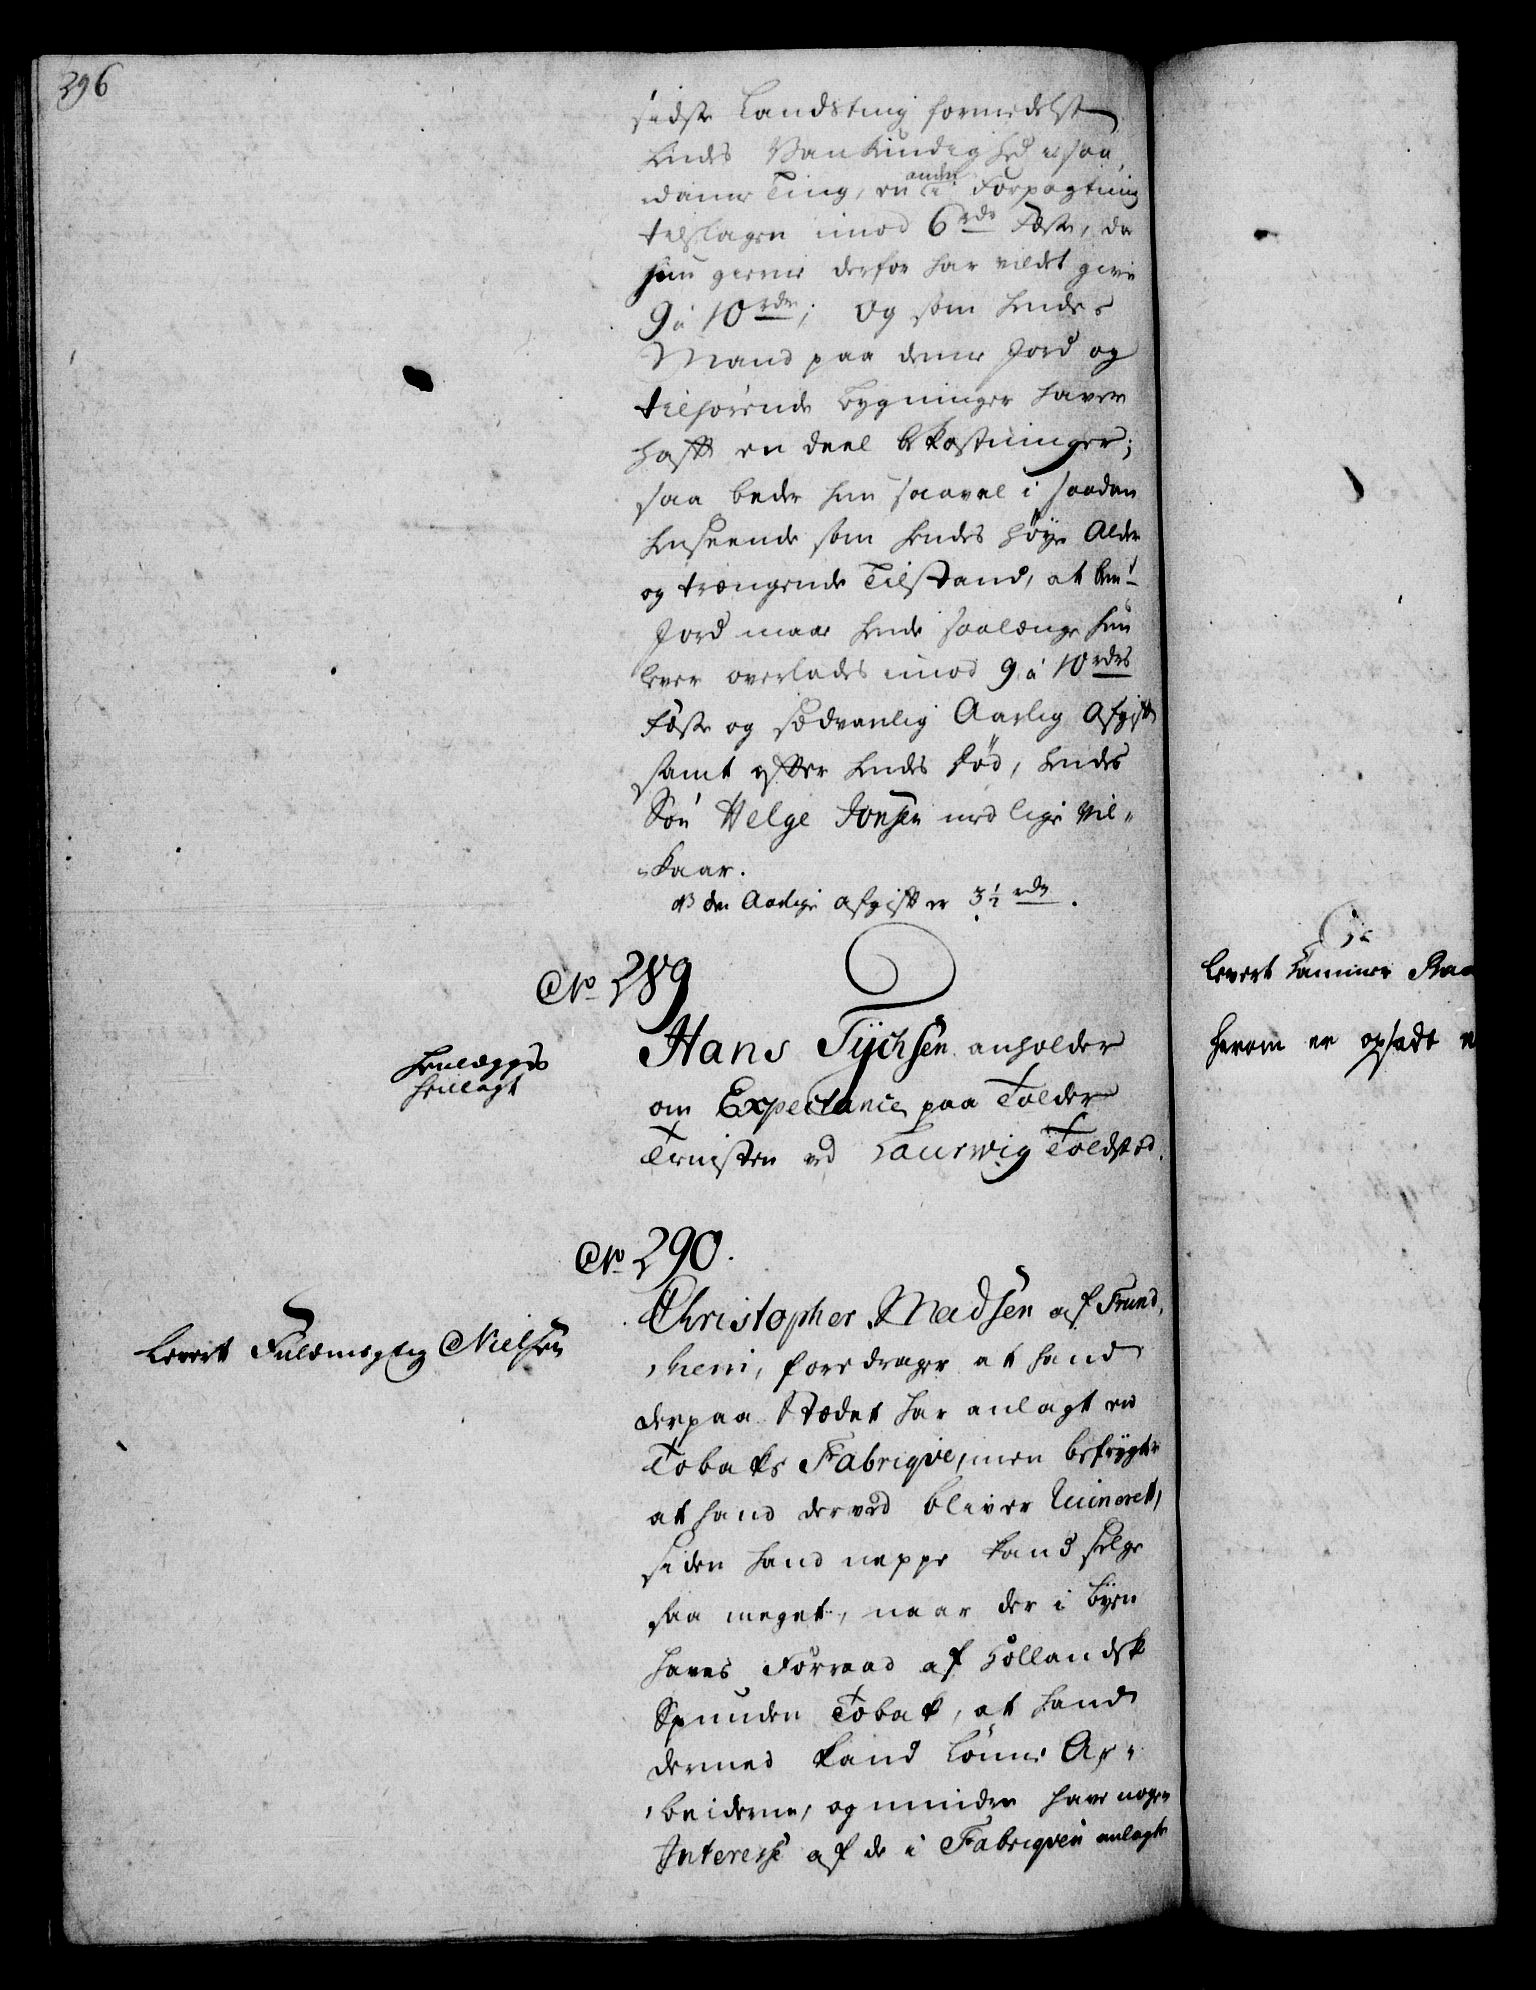 296
sidste Landsting formedelst
hendes Vankundighed i saa,
danne Ting, en anden i Forpagtning
tilslagen imod 6 rdr Fæste, da
hun gierne derfor har vildet give
9 à 10 rdr; Og som hendes
Mand paa denne Jord og
tilhörende bygninger haver
hafft en deel bekostninger;
saa beder hun saavel i saadan
henseende som hendes höye Alder
og trængende Tilstand, at bem:te
Jord maae hende saalænge hun
lever overlades imod 9 à 10 rdrs
Fæste og sædvanlig Aarlig Afgifft
samt effter hendes död, hendes
Sön Helge Jonsen med lige Vil-
-kaar.
NB den Aarlige afgifft er 3½ rdr.
No 289
Henlegges
henlagt
Hans Tÿchsen anholder
om Expectance paa Tolder
Tienisten ved Laurwig Toldsted.
No 290.
Levert Fuldmegtig Nielsen
Christopher Madsen af Trund,
,hiem, foredrager at hand
derpaa Stædet har anlagt en
Tobaks Fabriqve, men befrÿgter
at hand derved bliver Ruineret,
siden hand neppe kand sælge
saa meget, naar der i byen
haves Forraad af Hollandsk
Spunden Tobak, at hand
dermed kand lönne Ar-
,beiderne, og mindre have nogen
Interesse af de i Fabriqven anlagte
Levert Cammer Raa
herom er opsadt